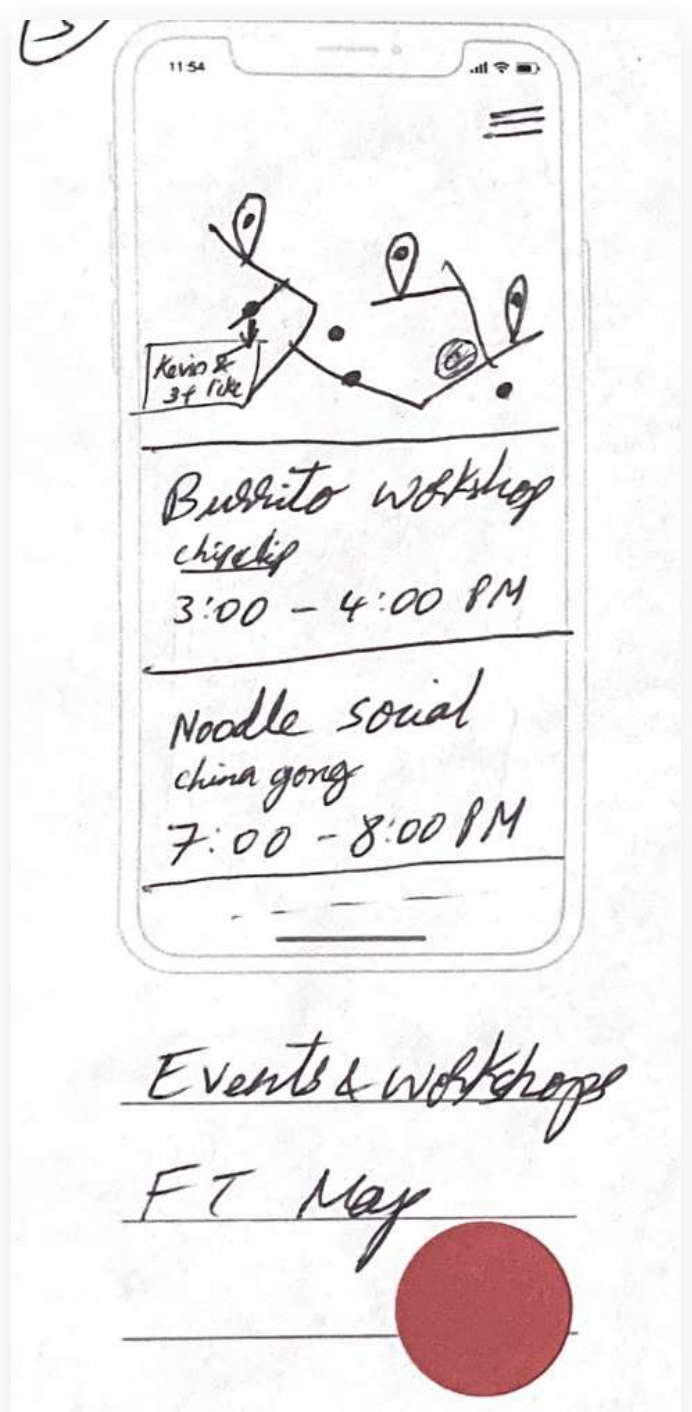 11:54
Kevin &
3+ like
Burrito workshop
3:00 - 4:00 PM
Noodle social
china gong
7:00 - 8:00 PM
Events & workshops
FT Map